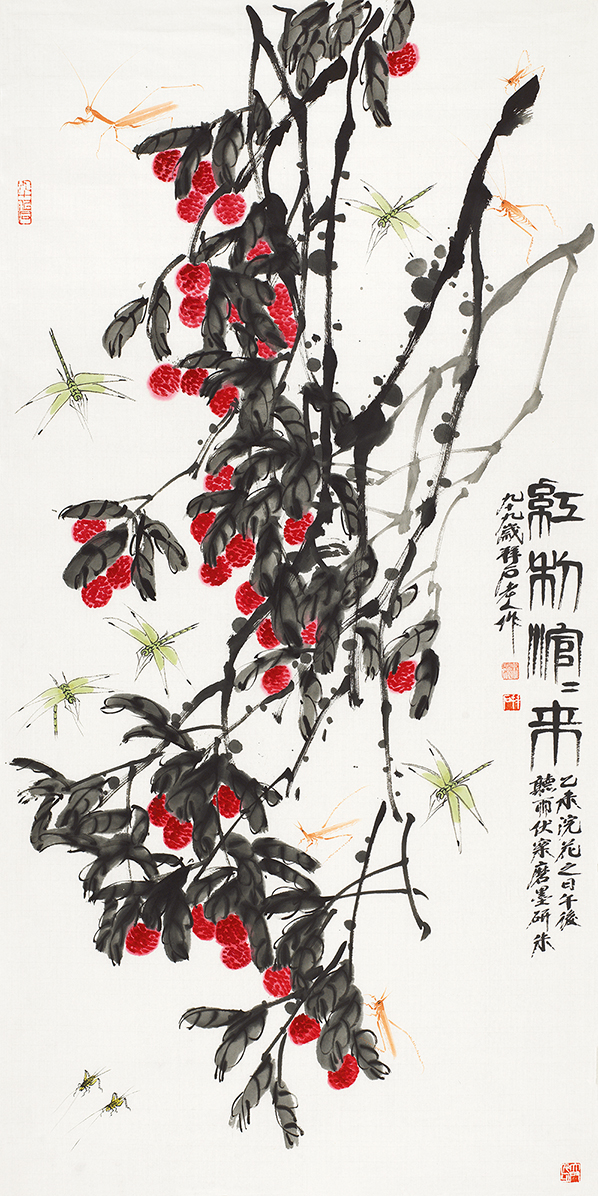 紅利涫〻来
九十九歲祥石老人作
乙未浣花之日午後
聽雨伏案磨墨研朱